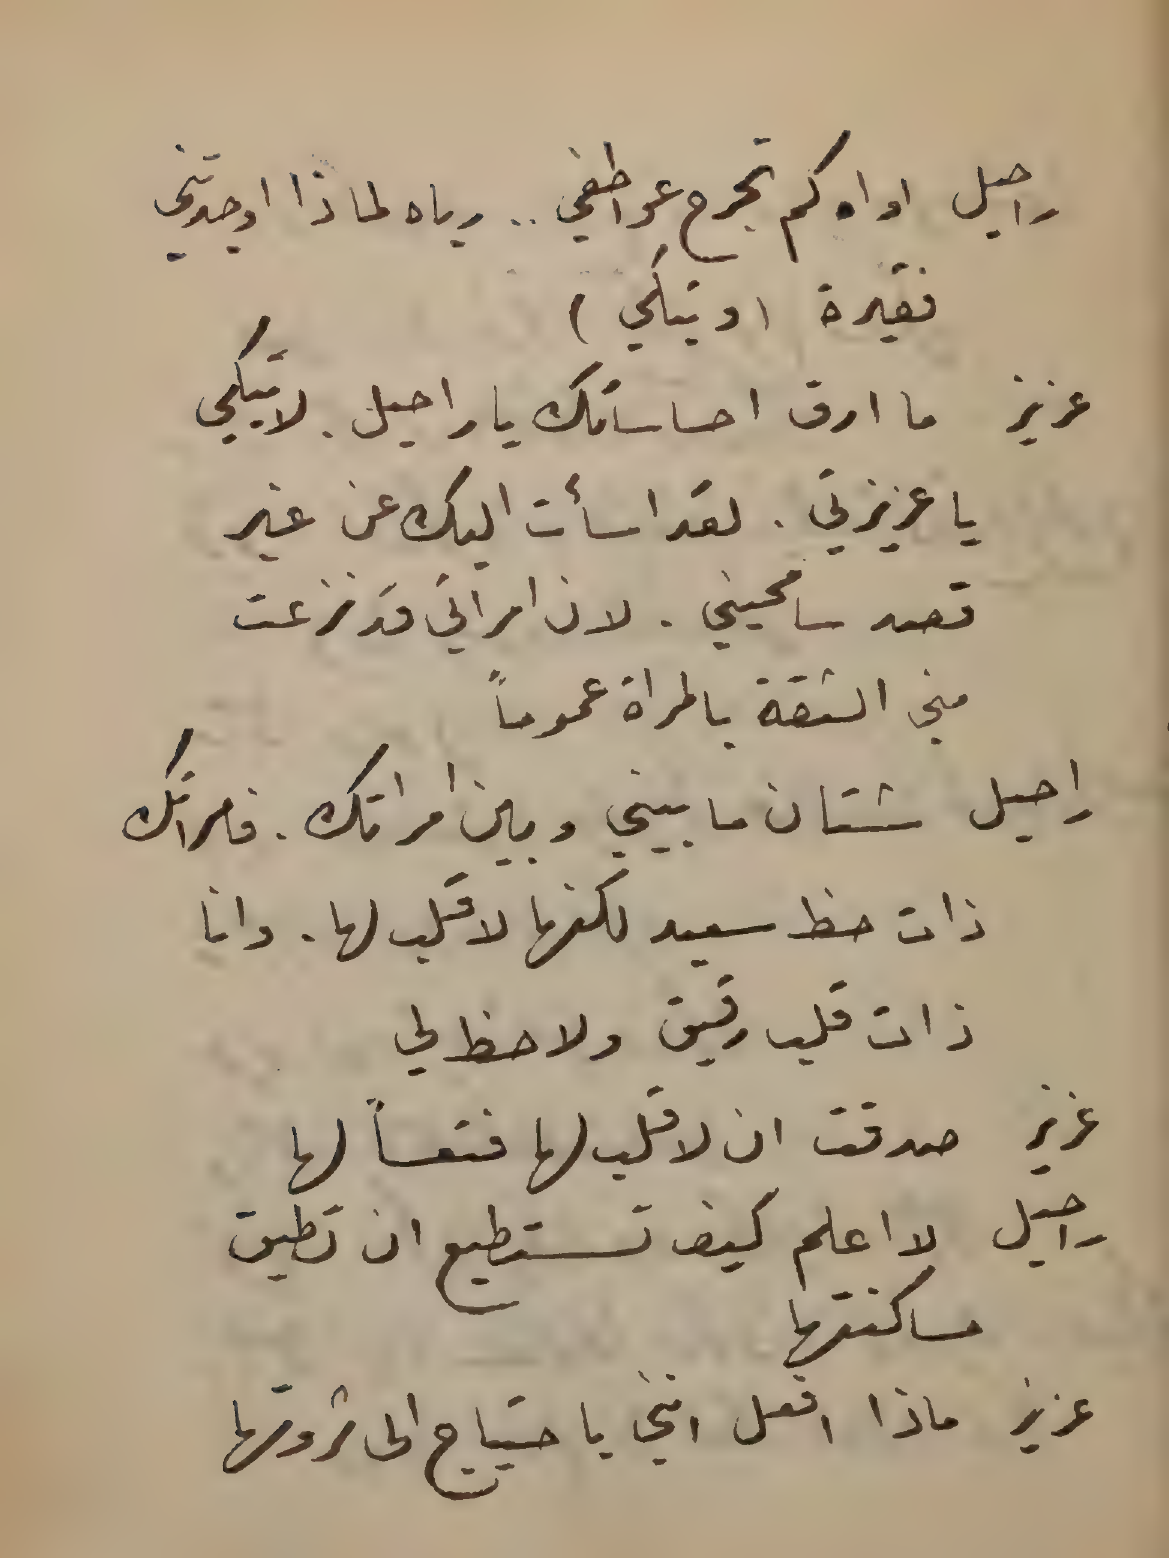 راحيل اواه كم تجرح عواطفي .. رباه لماذا اوجدتني
فقيرة (وتبكي)
عزيز ما ارق احساساتك يا راحيل . لا تبكي
يا عزيزتي . لقد اسأت اليك عن غير
قصد سامحيني . لان امراتي قد نزعت
مني الثقة بالمراة عموماً
راحيل شتان ما بيني وبين امراتك . فامراتك
ذات حظ سعيد لكنها لا قلب لها . وانا
ذات قلب رقيق ولا حظ لي
عزيز صدقت ان لا قلب لها فتعساً لها
راحيل لا اعلم كيف تستطيع ان تطيق
مساكنتها
عزيز ماذا افعل انني باحتياج الى ثروتها